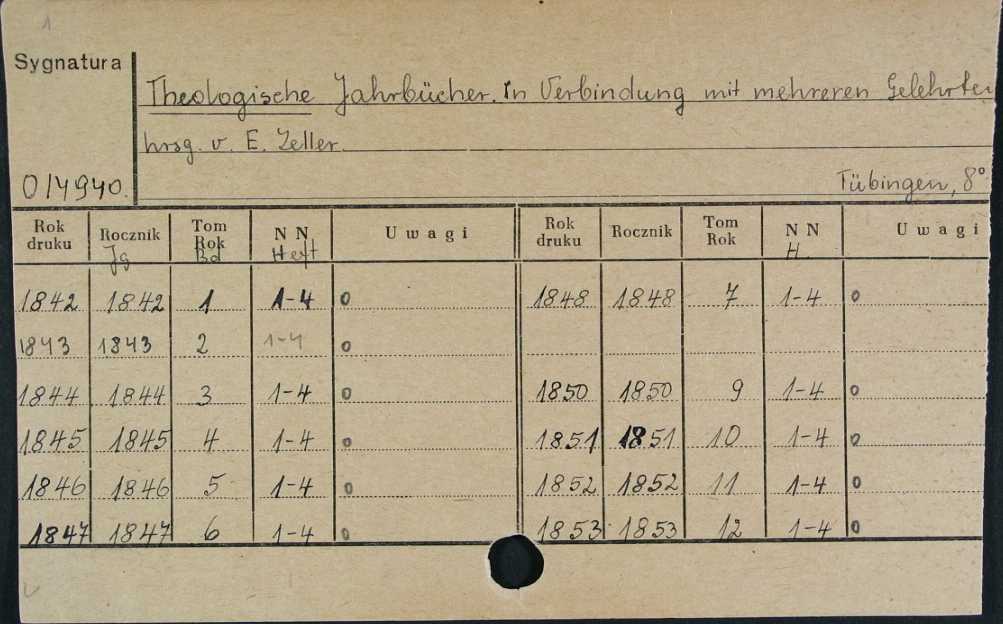 1
Sygnatura
Theologische Jahrbücher. In Verbindung mit mehreren Gelehrten
hrsg. v. E. Zeller.
014940.
Tübingen, 8°
Rok druku Rocznik Jg Tom Rok Bd N N Heft Uwagi Rok druku Rocznik Tom Rok N N H. Uwagi
1842 1842 1 1-4 0 1848 1848 7 1-4 0
1843 1843 2 1-4 0
1844 1844 3 1-4 0 1850 1850 9 1-4 0
1845 1845 4 1-4 0 1851 1851 10 1-4 0
1846 1846 5 1-4 0 1852 1852 11 1-4 0
1847 1847 6 1-4 0 1853 1853 12 1-4 0